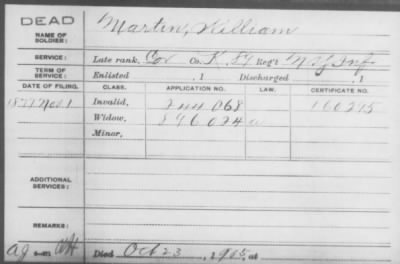 DEAD
NAME OF SOLDIER: Martin, William
SERVICE: Late rank, Cor Co. K, Regt N.Y. Inf.
TERM OF SERVICE: Enlisted , 1 Discharged , 1
DATE OF FILING. CLASS. APPLICATION NO. LAW. CERTIFICATE NO.
Nov. 1 Invalid, 244068 160295
Widow, 896024 a
Minor,
ADDITIONAL SERVICES:
REMARKS:
Died Oct 23, 1905, at